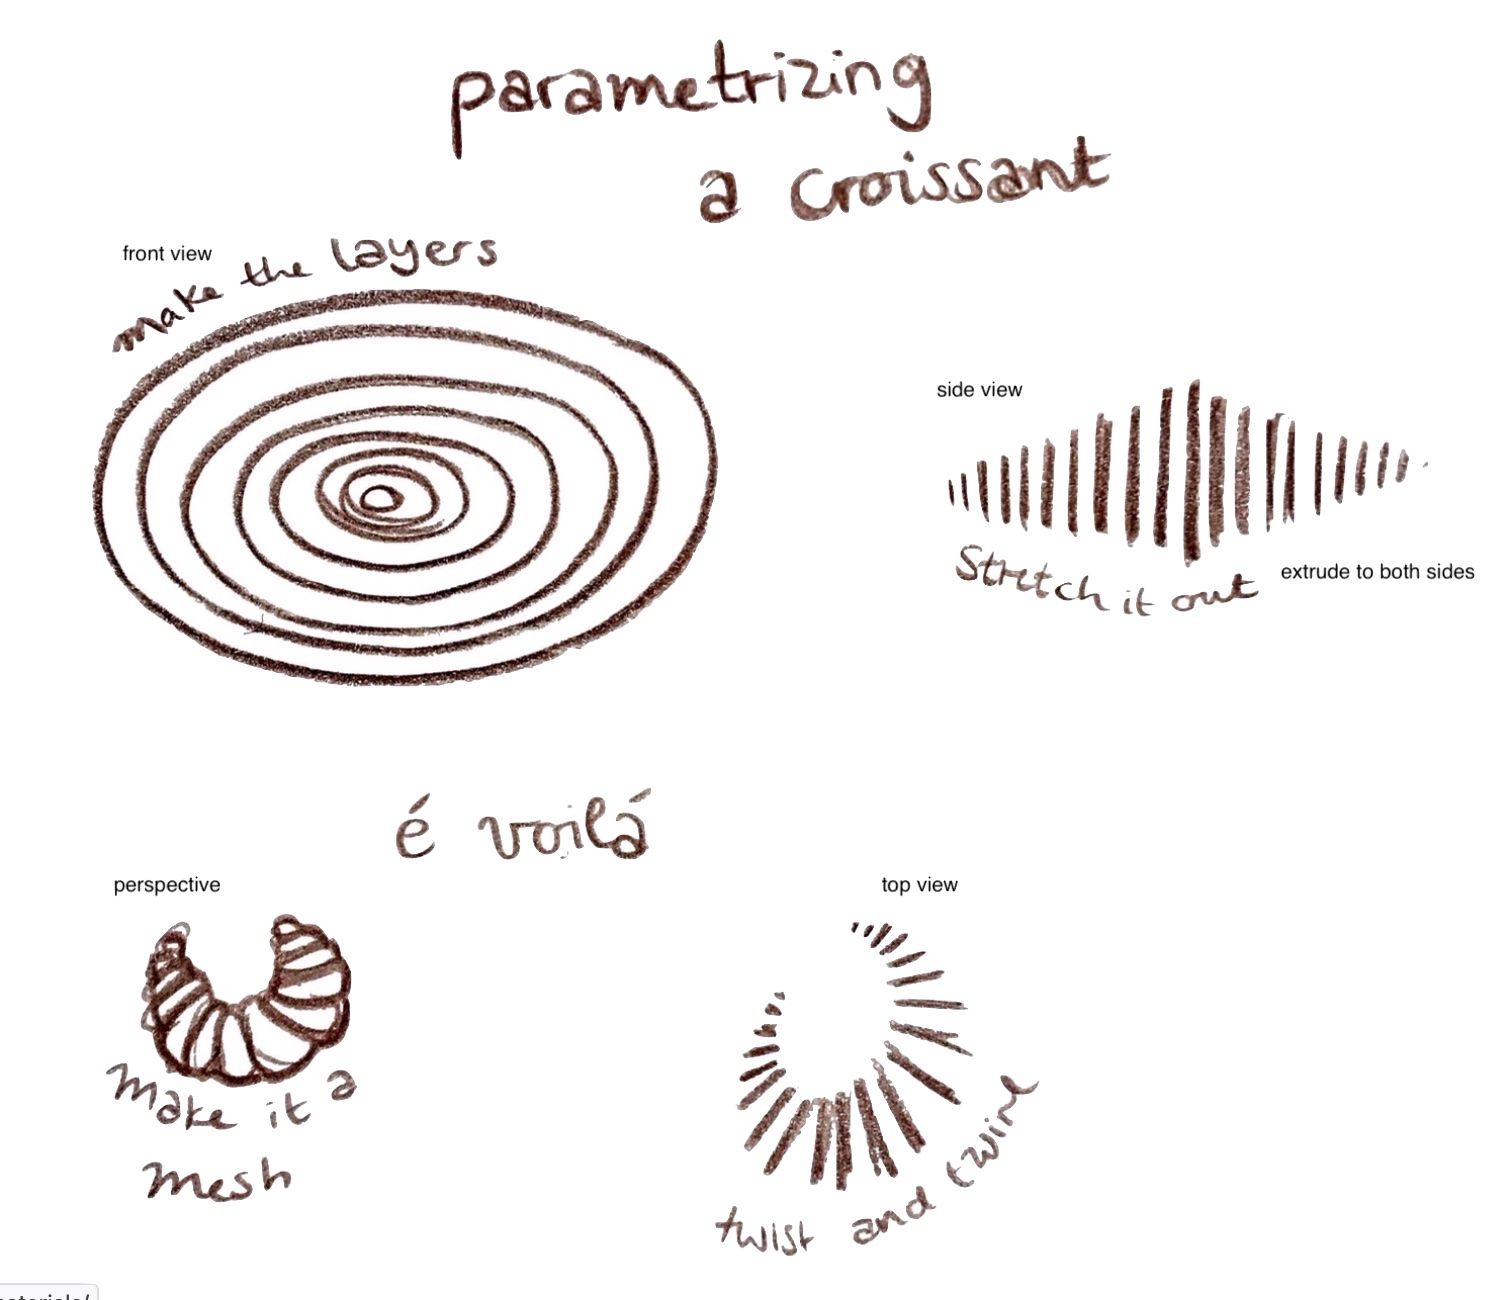 parametrizing
a croissant
front view
make the layers
side view
Stretch it out
extrude to both sides
é voilá
perspective
top view
Make it a
mesh
twist and twine